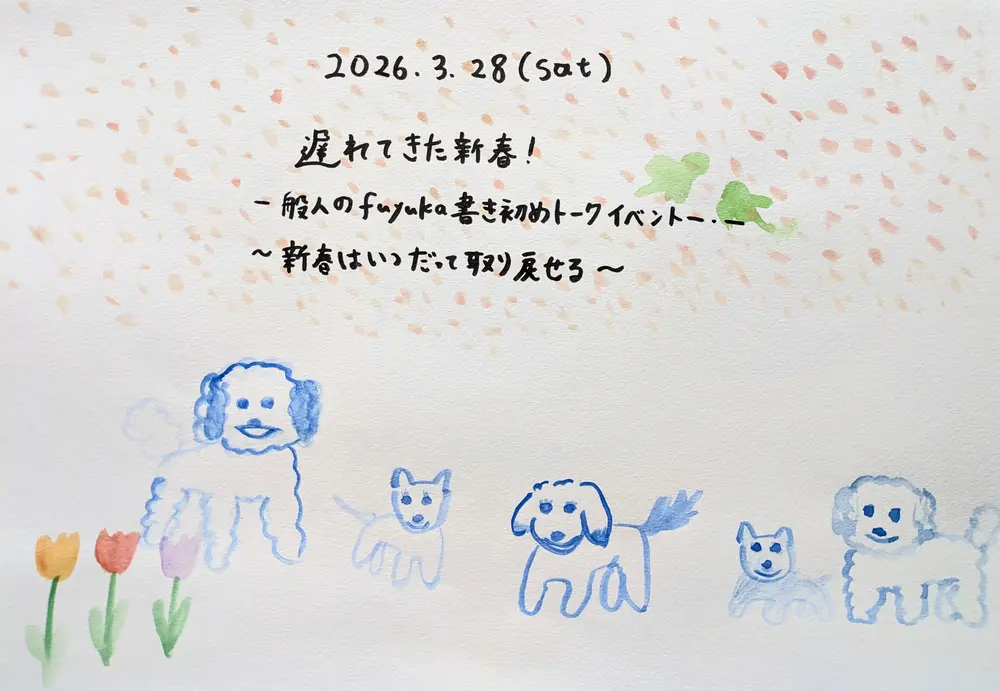 2026.3.28(sat)
遅れてきた新春!
一般人のfuyuka書き初めトークイベントー.ー
〜新春はいつだって取り戻せる〜